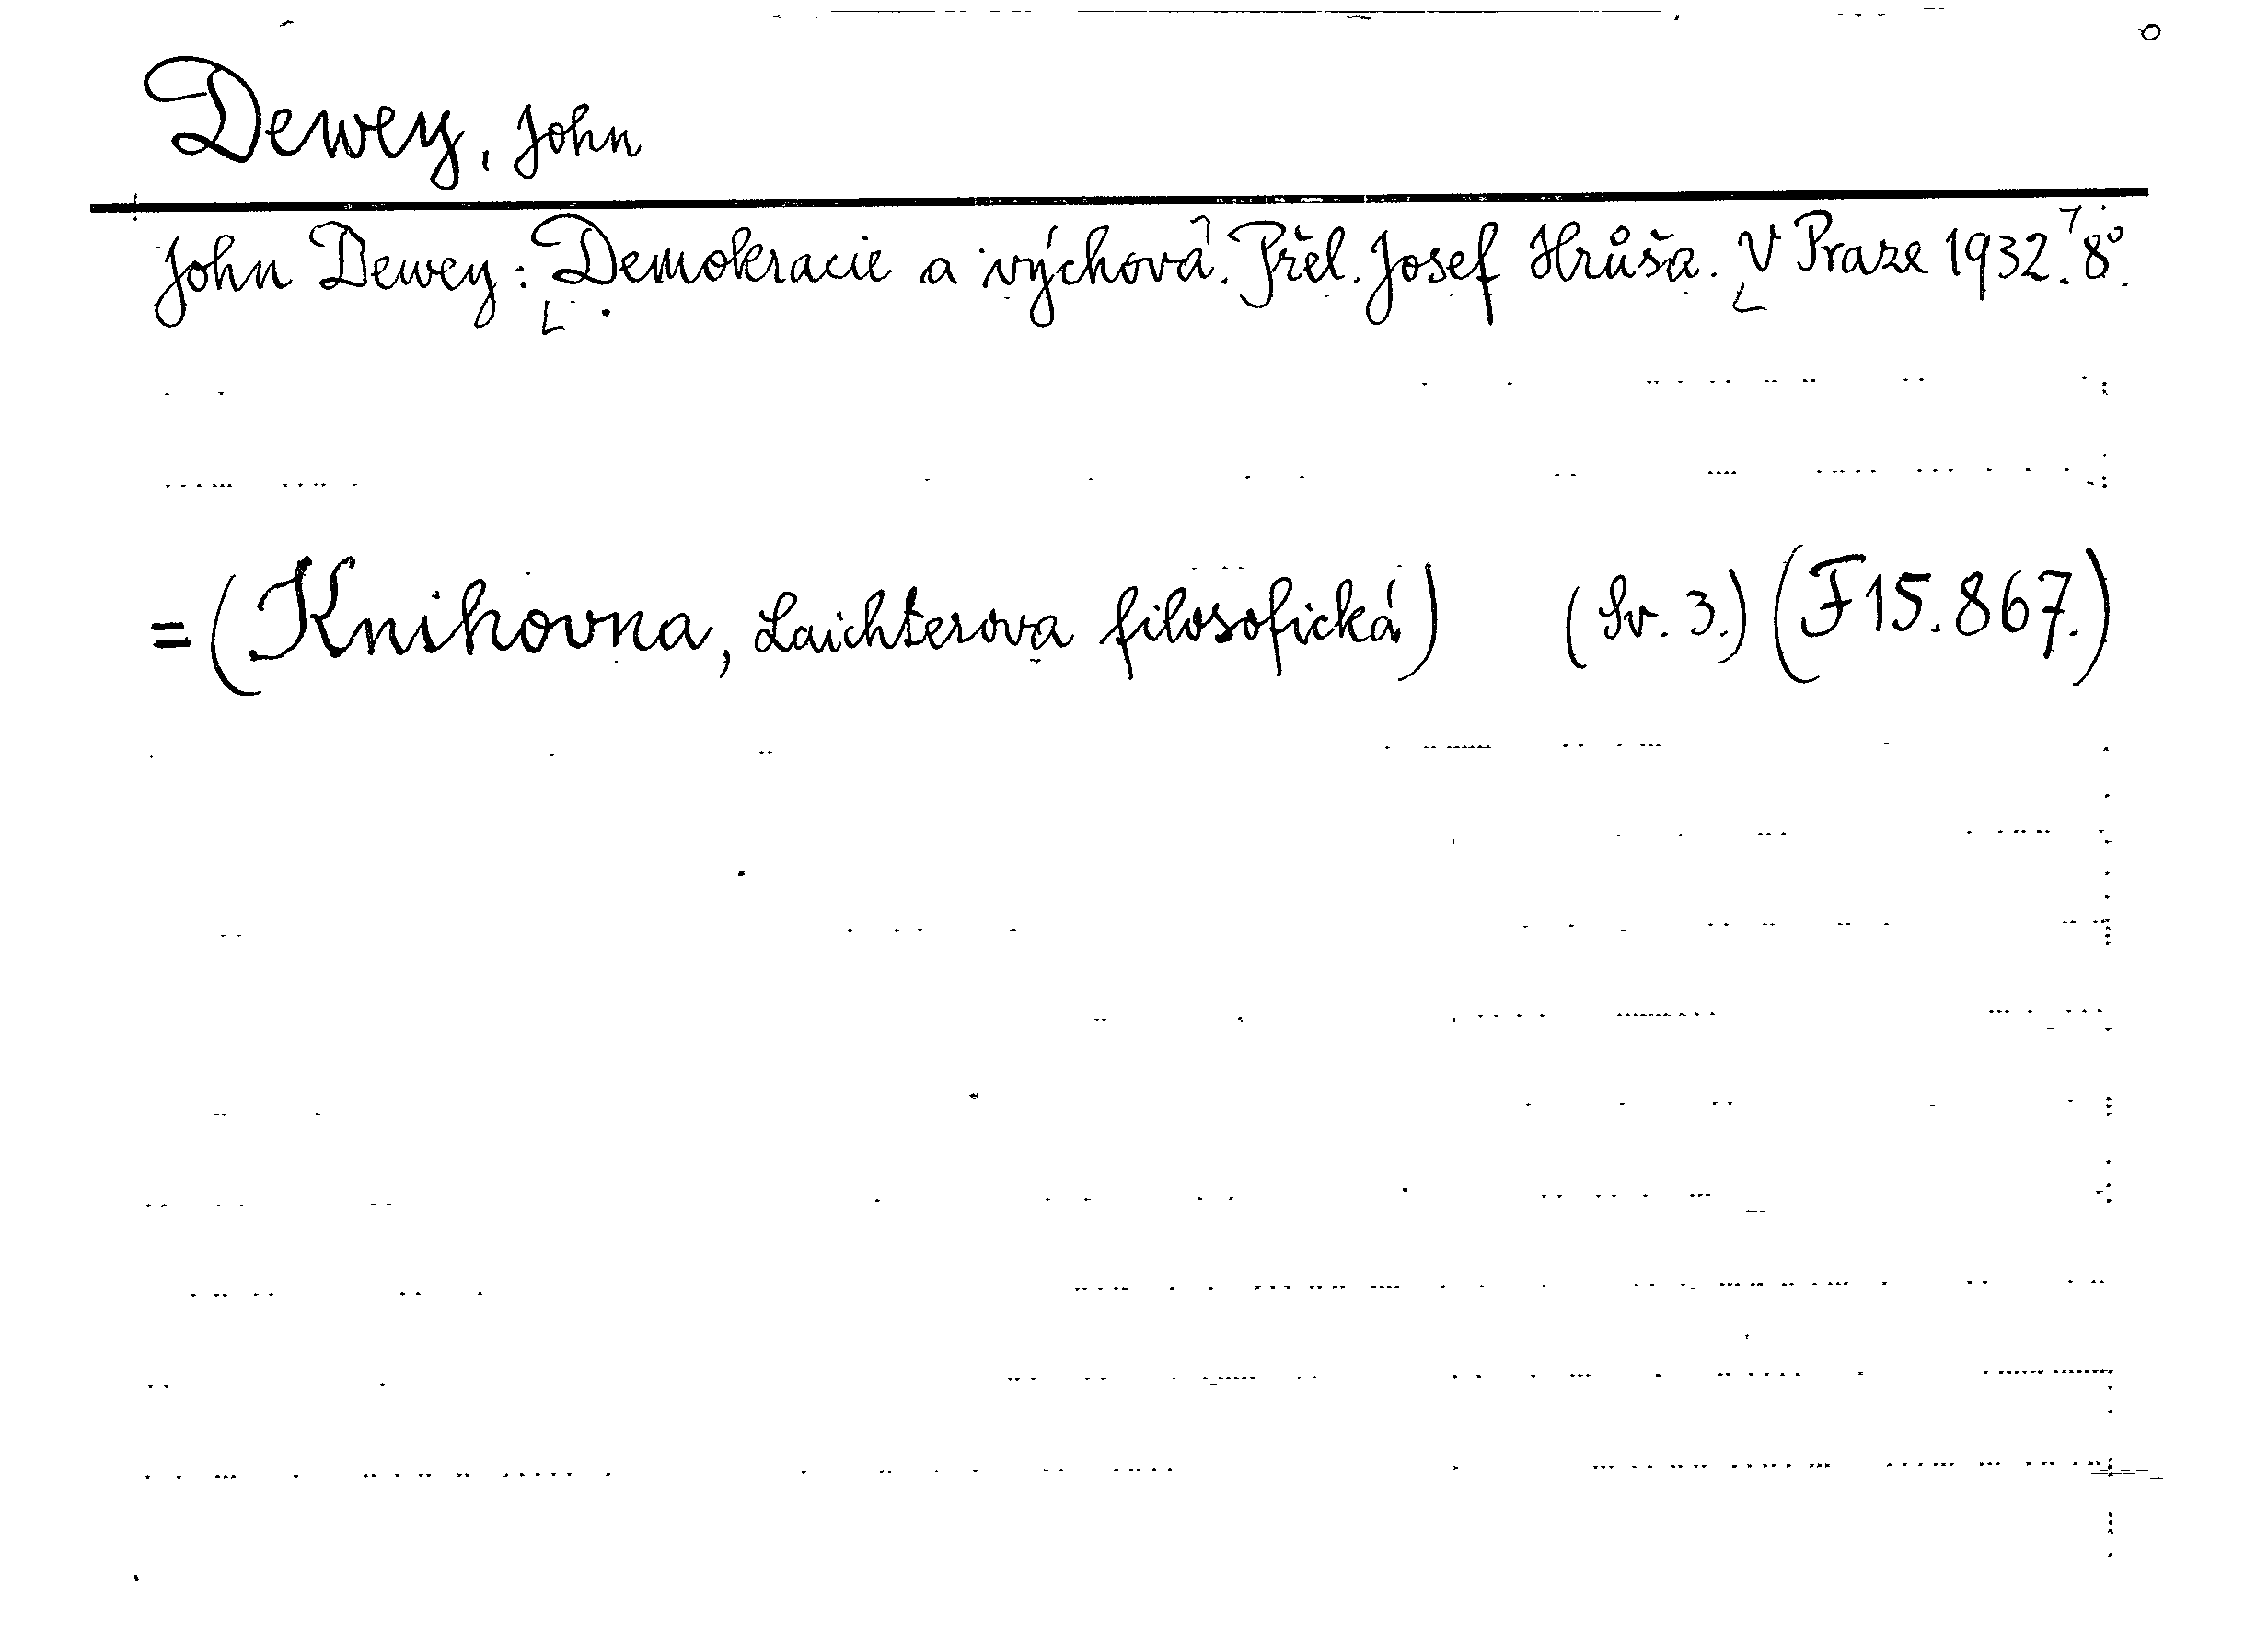 Dewey, John
John Dewey: Demokracie a výchova. Přel. Josef Hrůša. V Praze 1932. 8°.
=(Knihovna, Laichterova filosofická) (Sv. 3.) (F15.867.)